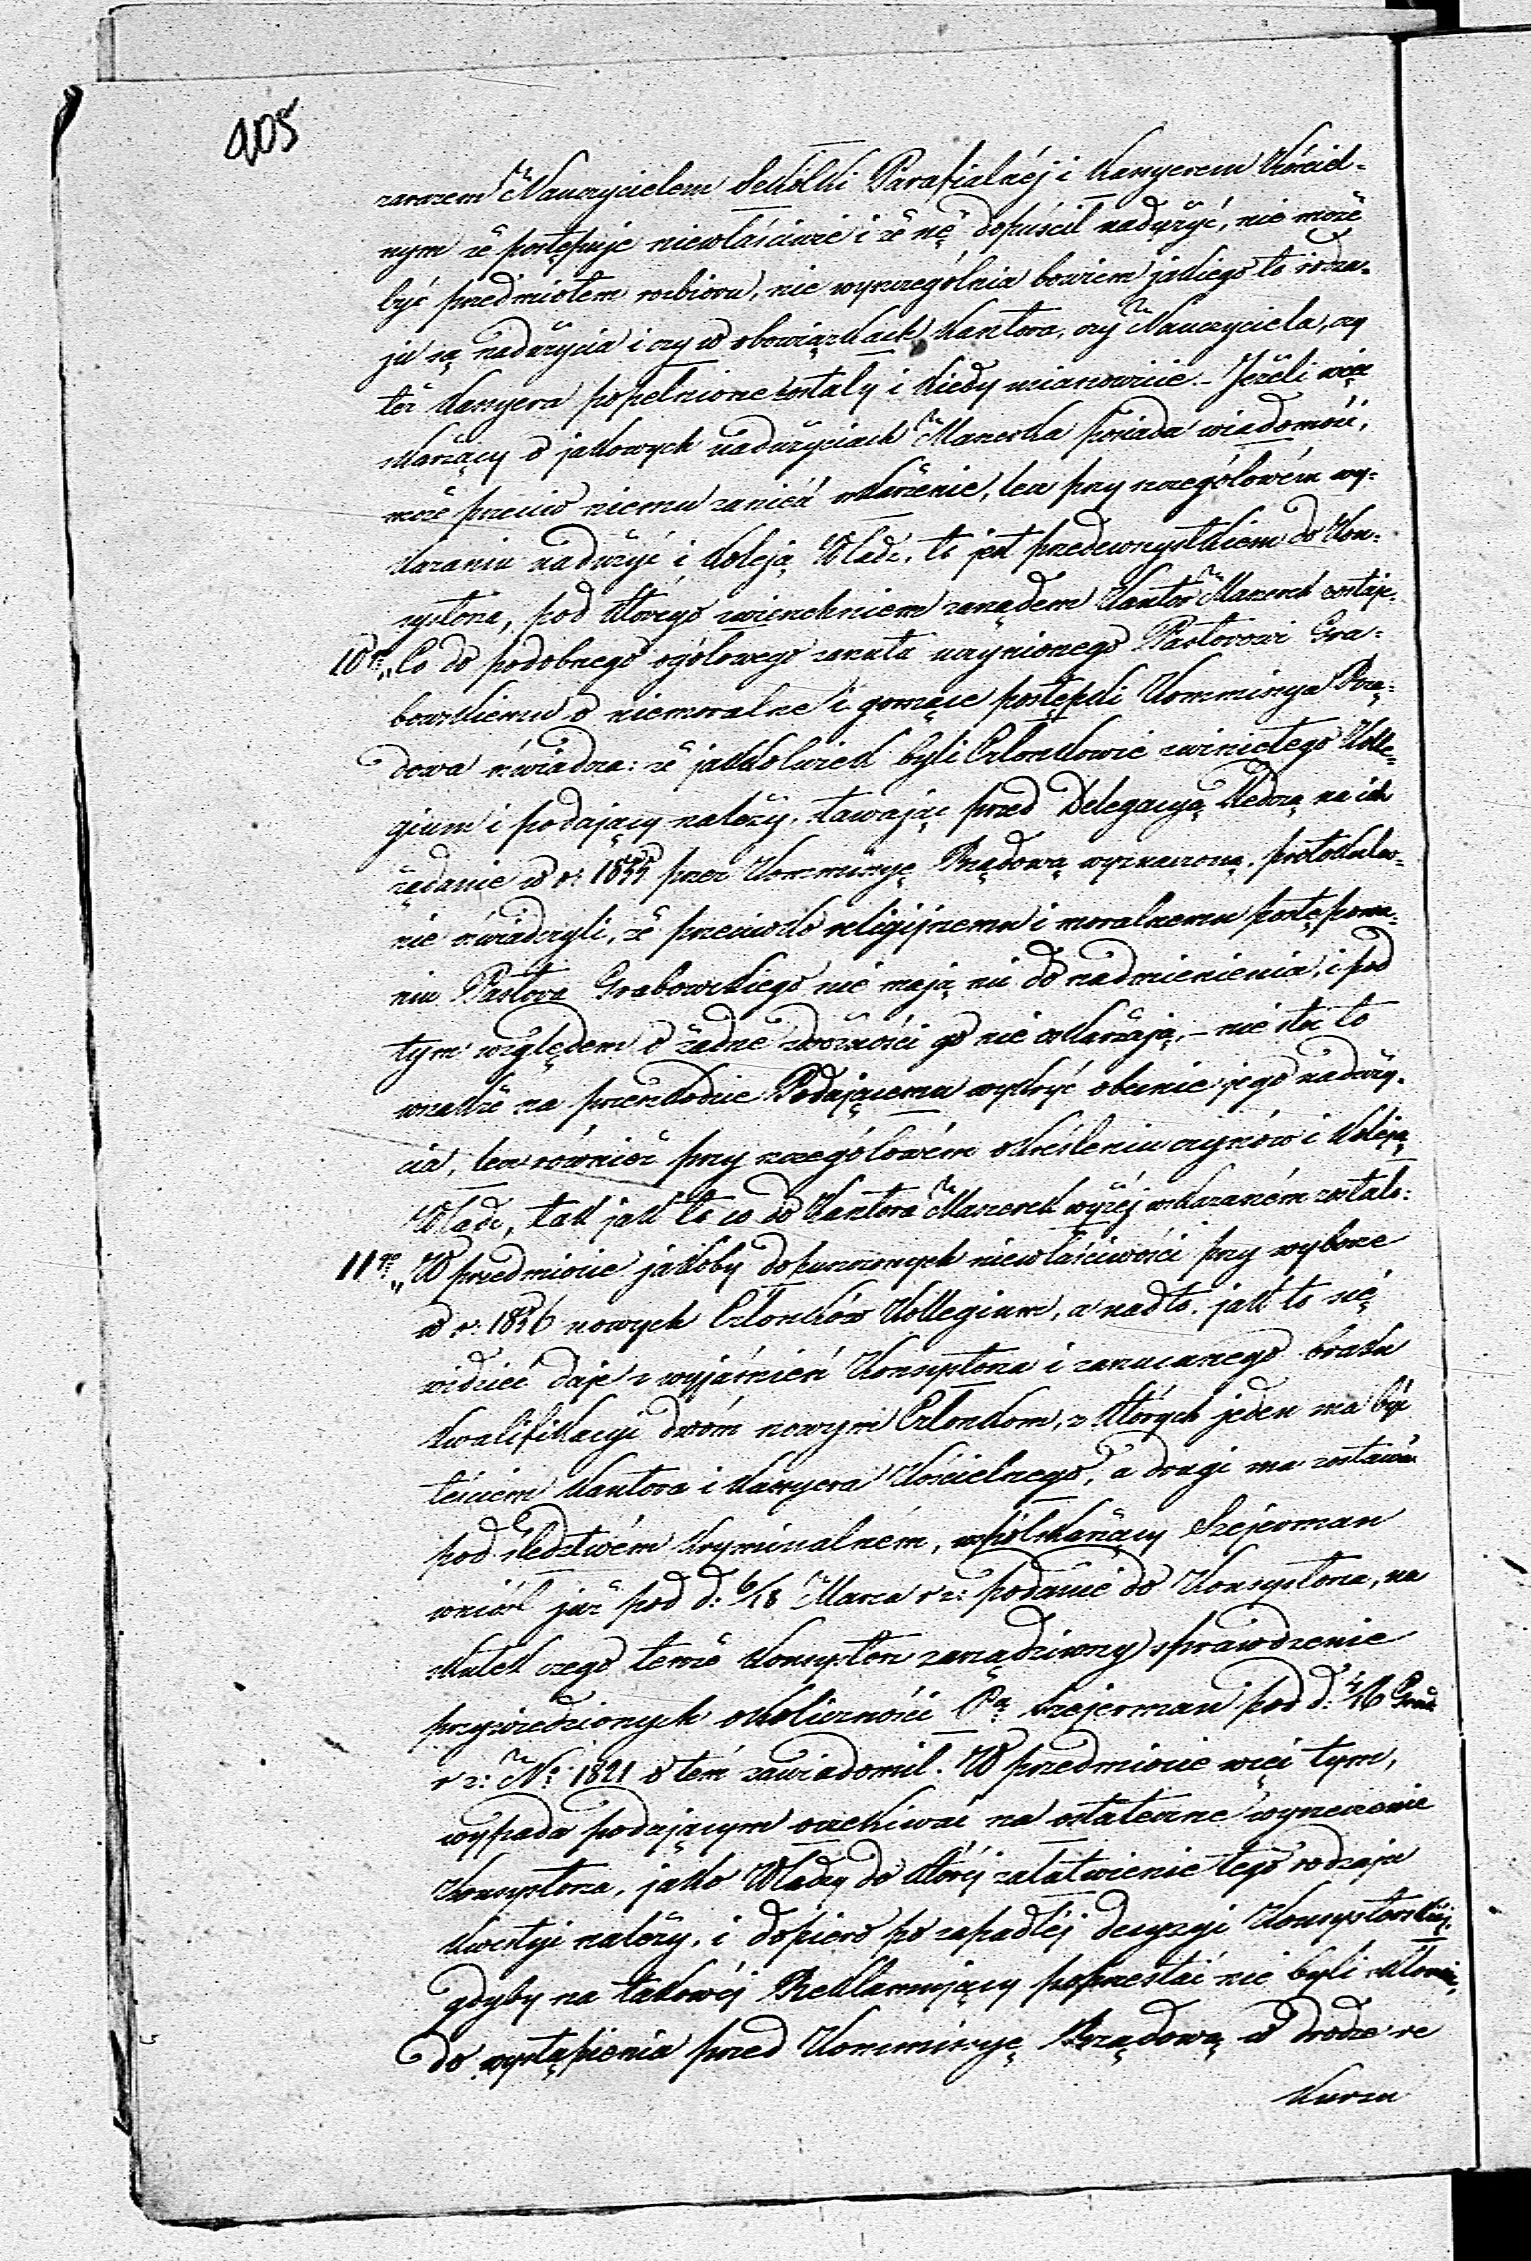 405
zarazem Nauczycielem Szkółki Parafialnéj i Kassyerem Kościel-
nym że postępuje niewłaściwie i że się dopuścił nadużyć, nie może
być przedmiotem rozbioru, nie wyszczególnia bowiem jakiego to rodza-
ju są nadużycia i czy w obowiązkach Kantora, czy Nauczyciela, czy
téż Kassyera popełnione zostały i kiedy mianowicie. – Jeżeli więc
skarżący o jakowych nadużyciach Manerka posiada wiadomość,
może przeciw niemu zanieść oskarżenie, lecz przy szczegółowém wy-
kazaniu nadużyć i koleją Władz, to jest przedewszystkiem do Kon-
systorza, pod którego zwierzchniem zarządem Kantor zostaje.
10e „Co do podobnego ogółowego zarzutu uczynionego Pastorowi Gra-
bowskiemu o niemoralne i gorszące postępki Kommissya Rzą-
dowa oświadcza: że jakkolwiek byli Członkowie zwiniętego Kolle-
gium i podający należy, stawając przed Delegacyą śledczą na ich
żądanie w r: 1855 przez Kommissyę Rządową wyznaczoną, protokular-
nie oświadczyli, że przeciwko religijnemu i moralnemu postępowa-
niu Pastora Grabowskiego nie mają nic do nadmienienia, i pod
tym względem o żadne zdrożności go nie oskarżają, – nie stoi to
wszakże na przeszkodzie Podającemu wykryć obecnie jego naduży-
cia, lecz również przy szczegółowém określeniu czynów i koleją
Władz, tak jak to co do Kantora wyżéj wskazaném zostało.
11e „W przedmiocie jakoby dopuszczonych niewłaściwości przy wyborze
w r: 1856 nowych Członków Kollegium, a nadto, jak to się
widzieć daje z wyjaśnień Konsystorza i zarzucanego braku
kwalifikacyi dwóm nowym Członkom, z których jeden ma być
teściem Kantora i Kassyera Kościelnego, a drugi ma zostawać
pod śledztwém kryminalném, współskarżący Szejerman
wniósł już pod d: 6/18 Marca r z: podanie do Konsystorza, na
skutek czego tenże Konsystorz zarządziwszy sprawdzenie
przywiedzionych okoliczności Pa Szejerman pod d: 4/16 Grud
r z: No 1821 o tém zawiadomił. W przedmiocie więc tym,
wypada podającym oczekiwać na ostateczne wyrzeczenie
Konsystorza, jako Władzy do któréj załatwienie tego rodzaju
kwestyi należy, i dopiero po zapadłéj decyzyi Konsystorskiéj,
gdyby na takowéj Reklamujący poprzestać nie byli skłonni,
do wystąpienia przed Kommissyę Rządową w drodze re
kursu